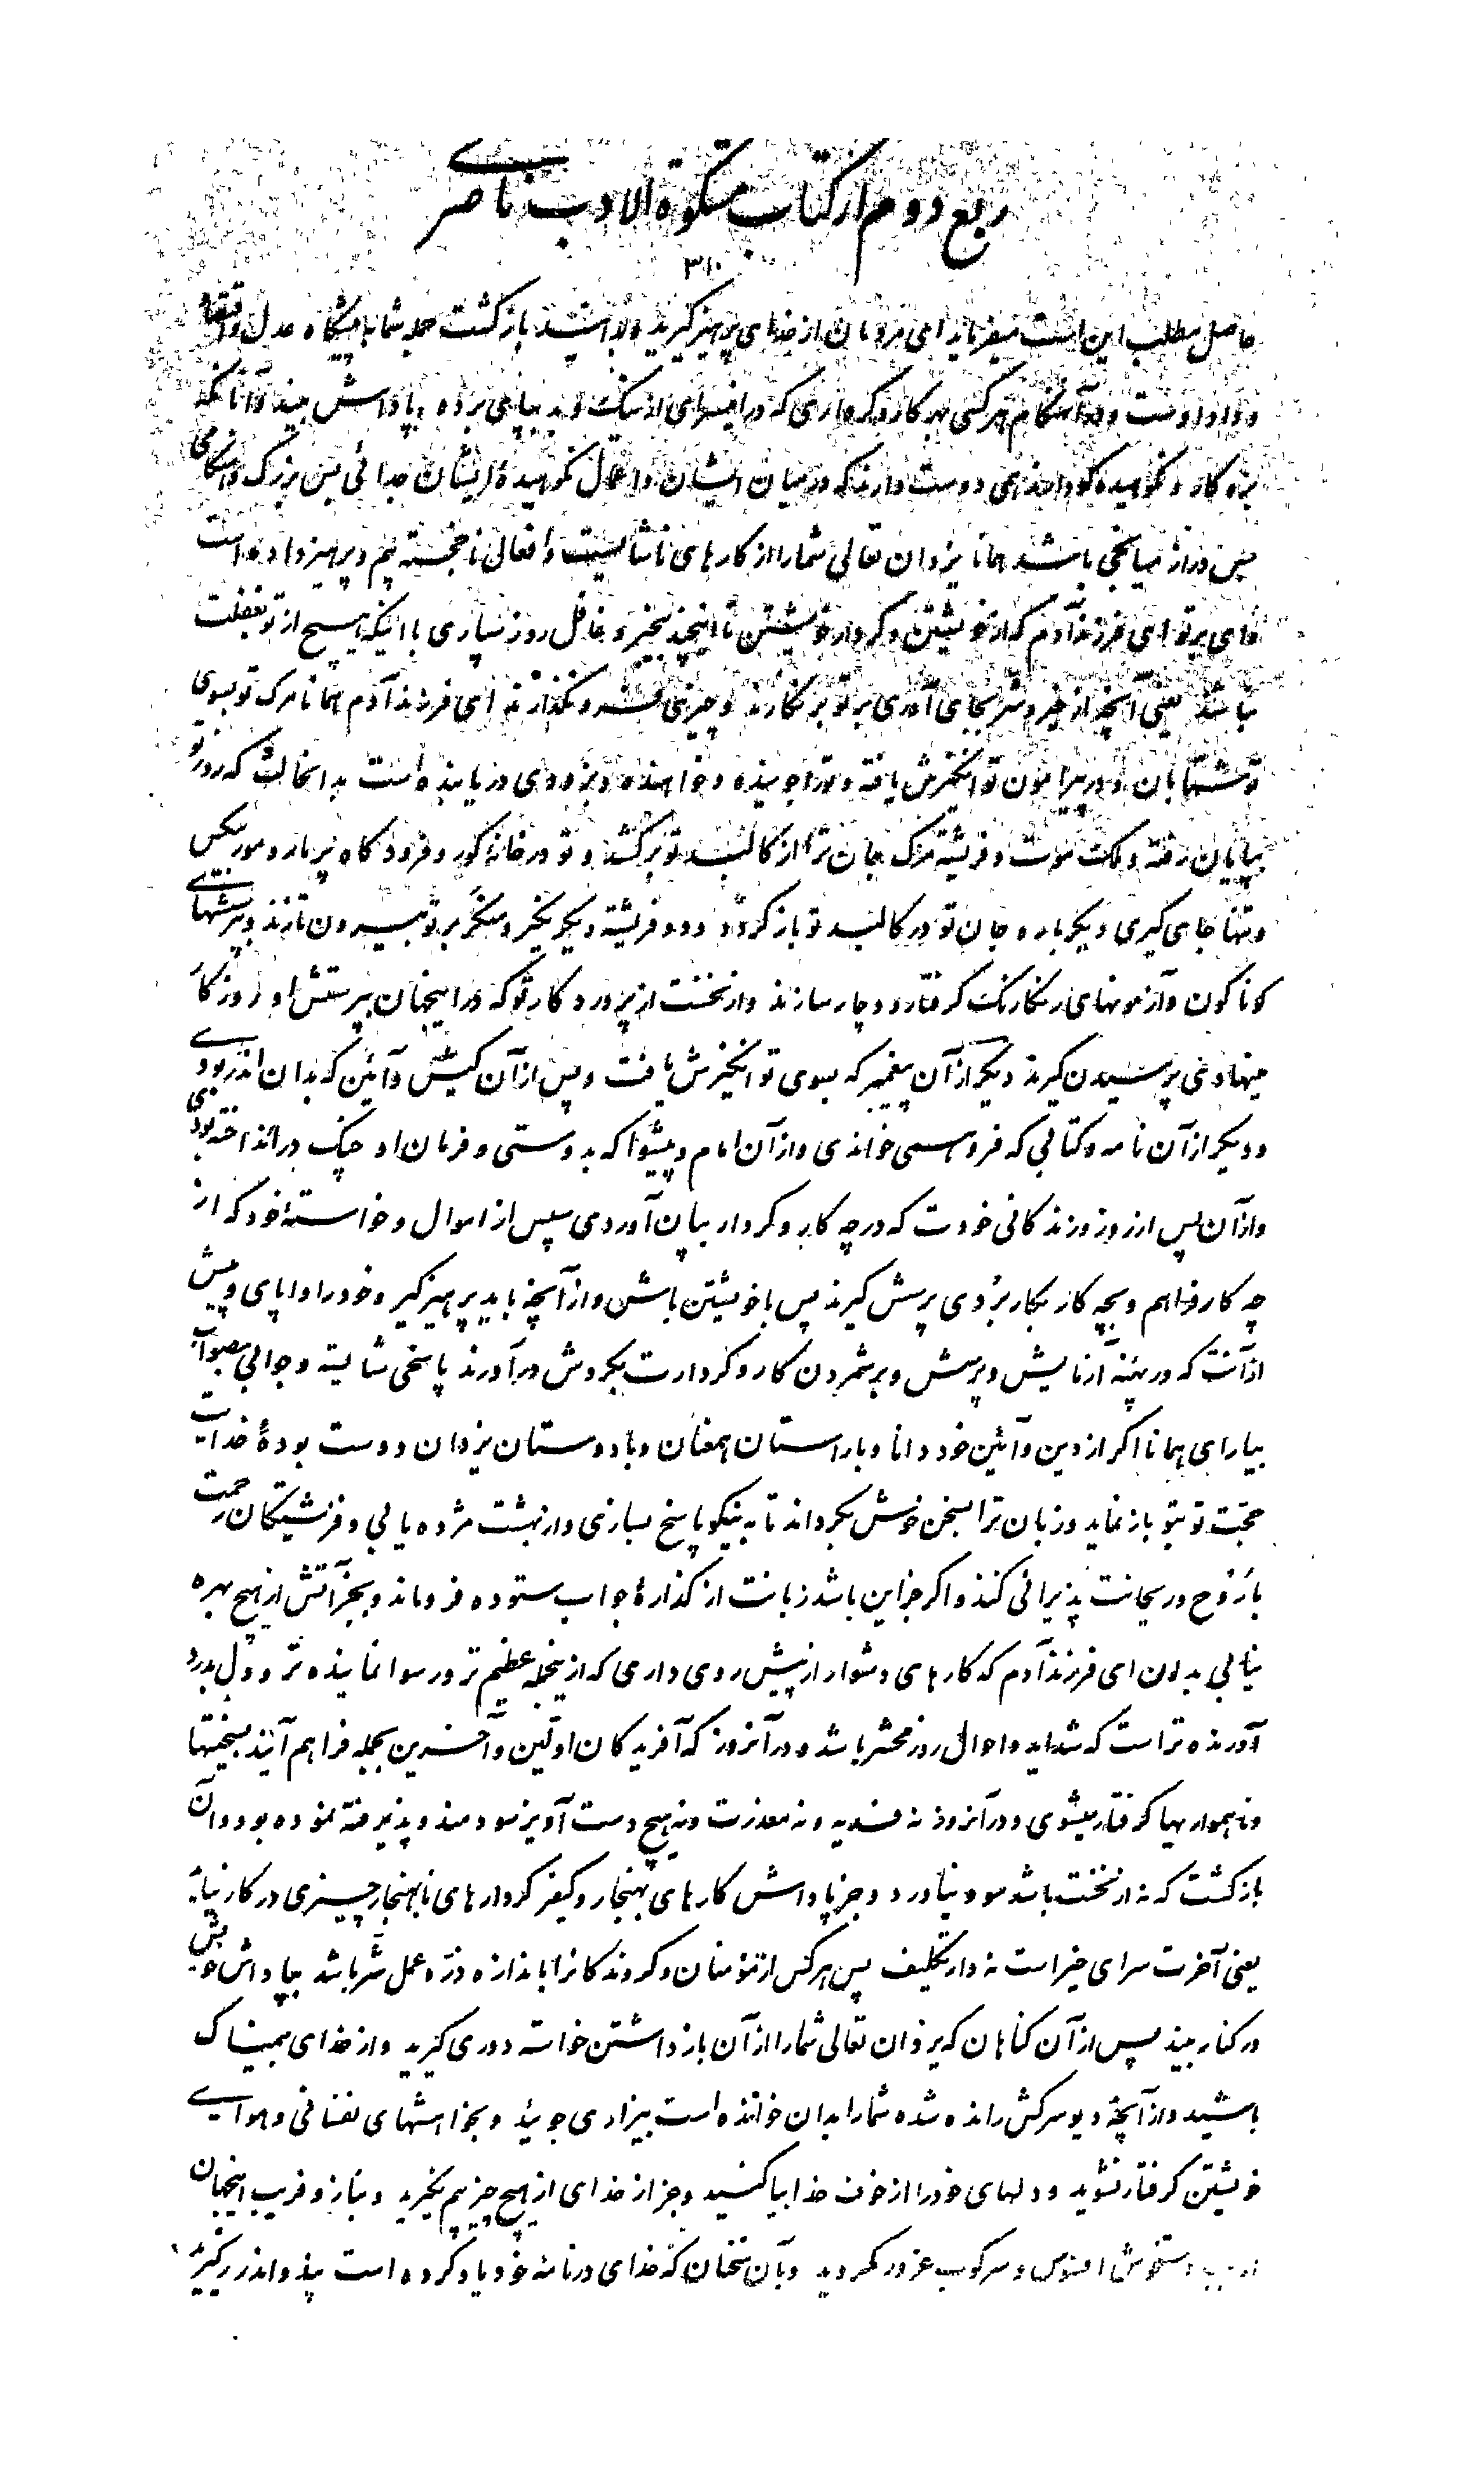 ربع دوم از کتاب مشکوة الادب ناصری
۳۱۰
حاصل مطلب این است میفرماید ای مردمان از خدای پرهیز گیرید و بدانید بازگشت جمله شما با پیشگاه عدل و اقتضا
و داد اوست و در آنهنگام هر کسی بهر کار و کرداری که در اینسرای از نیک و بد بپای برده پاداش بیند و آنانکه
بزه کار و نکوهیده کردارند همی دوست دارند که در میان ایشان و اعمال نکوهیدهٔ ایشان جدائی بس بزرگ و هنگامی
بس دراز میانجی باشد همانا یزدان تعالی شما را از کارهای ناشایست و افعال ناخجسته بیم و پرهیز داده است
وای بر تو ای فرزند آدم که از خویشتن و کردار خویشتن تا اینچند بیخبر و غافل روز سپاری با اینکه هیچ از تو بغفلت
نباشند یعنی آنچه از خیر و شر بجای آوری بر تو بر نگارند و چیزی فرو نگذارند ای فرزند آدم همانا مرگ تو بسوی
تو شتابان و در پیرامون تو انگیزش یافته و ترا جوینده و خواهنده و بزودی دریابنده است بدانحالت که روز تو
بپایان رفته و ملک موت و فرشته مرگ جان ترا از کالبد تو برکشد و تو در خانهٔ گور و فرودگاه پر مار و مور بیکس
و تنها جای گیری دیگر باره جان تو در کالبد تو باز گردد و دو فرشته دیگر نکیر و منکر بر تو بیرون تازند و پرسشهای
گوناگون و آزمونهای رنگارنگ گرفتار و دوچار سازند و از نخست از پروردگار تو که در اینجهان پرستش او روزگار
مینهادی پرسیدن گیرند دیگر از آن پیغمبر که بسوی تو انگیزش یافت و پس از آن کیش و آئین که بدان اندر بودی
و دیگر از آن نامه و کتابی که فرو همی خواندی و از آن امام و پیشوا که بدوستی و فرمان او چنگ در انداخته بودی
و از آن پس از روز و زندگانی خودت که در چه کار و کردار بپایان آوردی سپس از اموال و خواسته خود که از
چه کار فراهم و بچه کار بکار بردی پرسش گیرند پس با خویشتن باش و از آنچه باید پرهیز گیر و خود را واپای و پیش
از آنت که در پهنه آزمایش و پرسش و برشمردن کار و کردارت بگردش در آورند پاسخی شایسته و جوابی بصواب
بیارای همانا اگر از دین و آئین خود دانا و با راستان همعنان و با دوستان یزدان دوست بودهٔ خدایت
حجّت تو بتو باز نماید و زبان ترا بسخن خوش بگرداند تا به نیکو پاسخ بسازی و از بهشت مژده یابی و فرشتگان رحمت
با رَوح و ریحانت پذیرائی کنند و اگر جز این باشد زبانت از گذارهٔ جواب ستوده فرو ماند و بجز آتش از هیچ بهره
نیابی بدان ای فرزند آدم که کارهای دشوار از پیش روی داری که از اینجمله عظیم تر و رسوا نماینده تر و دل بدرد
آورنده تر است که شداید و احوال روز محشر باشد و در آنروز که آفریدگان اوّلین و آخرین بجمله فراهم آیند بسختیها
و ناهمواریها گرفتار میشوی و در آنروز نه فدیه و نه معذرت و نه هیچ دست آویز سودمند و پذیرفته نموده بود و آن
بازگشت که نه از نخست باشد سود نیاورد و جز پاداش کارهای بهنجار و کیفر کردارهای نابهنجار چیزی در کار نیاید
یعنی آخرت سرای جزاست نه دار تکلیف پس هر کس از مؤمنان و گروندگانرا باندازه ذرّه عمل شر باشد بپاداش خویش
در کنار بیند پس از آن گناهان که یزدان تعالی شما را از آن باز داشتن خواسته دوری گیرید و از خدای بیمناک
باشید و از آنچه دیو سرکش رانده شده شما را بدان خوانده است بیزاری جوئید و بخواهشهای نفسانی و هوای
خویشتن گرفتار نشوید و دلهای خود را از خوف خدا بیاکنید و جز از خدای از هیچ چیز بیم نگیرید و بناز و فریب اینجهان
دستخوش افسوس و سرکوب غرور نگردید و بآن سخنان که خدای در نامه خود یاد کرده است پند و اندرز گیرید